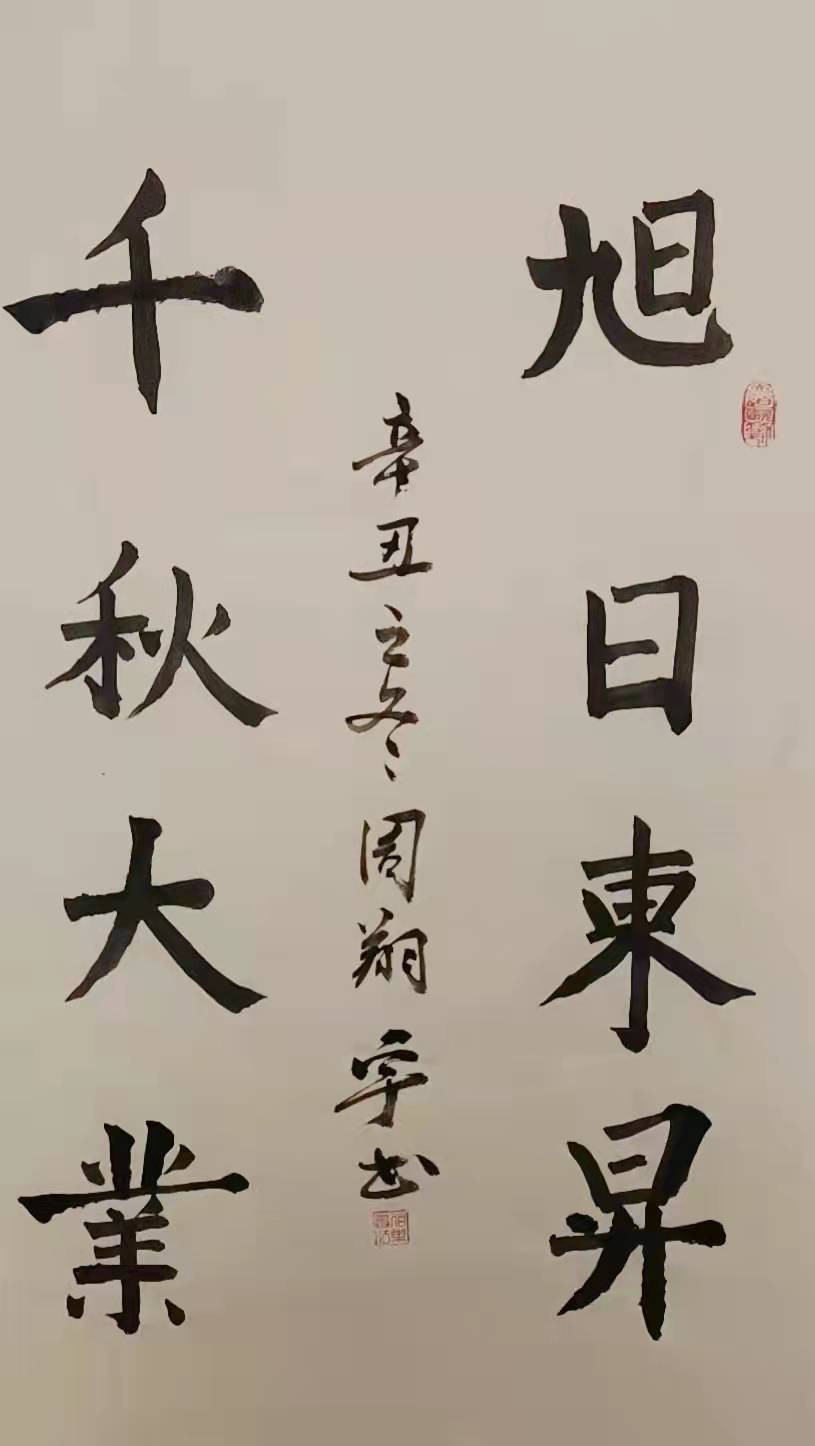 旭日東昇
千秋大業
辛丑之冬周翔宇书